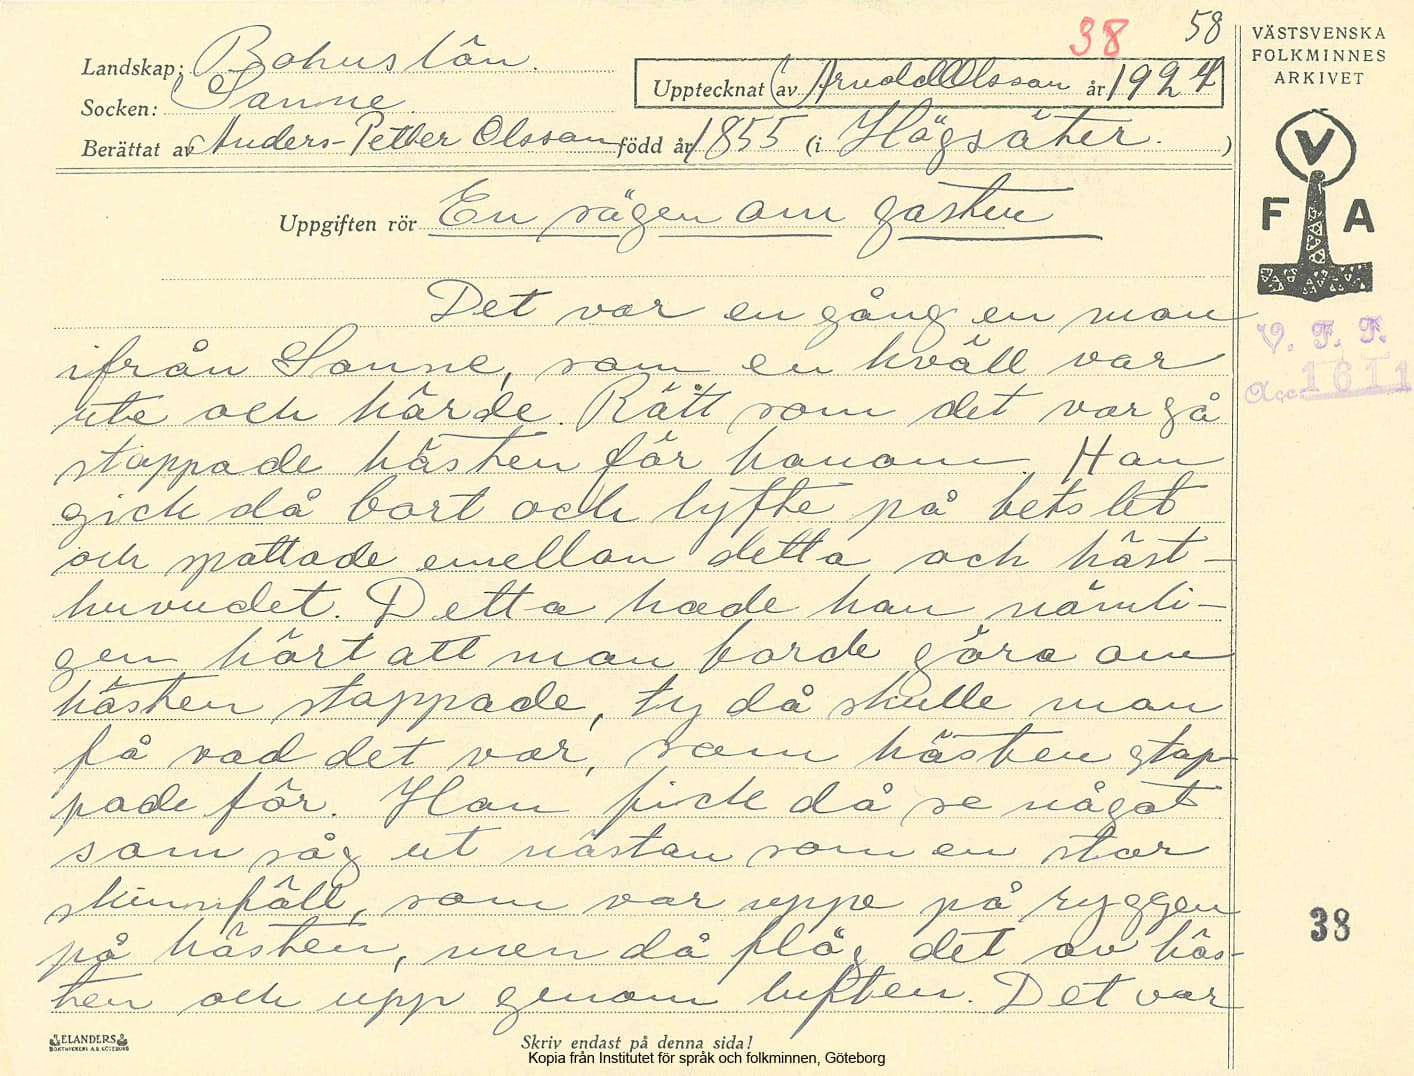 38 58
Landskap: Bohuslän.
Socken: Sanne
Upptecknat av Arvid Olsson år 1924
Berättat av Anders-Petter Olsson född år 1855 (i Högsäter. )
Uppgiften rör En sägen om gasten
Det var en gång en man
ifrån Sanne, som en kväll var
ute och körde. Rätt som det var så
stoppade hästen för honom. Han
gick då bort och lyfte på betslet
och spottade emellan detta och häst-
huvudet. Detta hade han nämli-
gen hört att man borde göra om
hästen stoppade, ty då skulle man
få vad det var, som hästen stop-
pade för. Han fick då se något
som såg ut nästan som en stor
skinnfäll, som var uppe på ryggen
på hästen, men då flög det av häs-
ten och upp genom luften. Det var
VÄSTSVENSKA
FOLKMINNES
ARKIVET
V
F A
V. F. F.
Acc. 1611
38
ELANDERS
BOKTRYCKERI A.B. GÖTEBORG
Skriv endast på denna sida!
Kopia från Institutet för språk och folkminnen, Göteborg